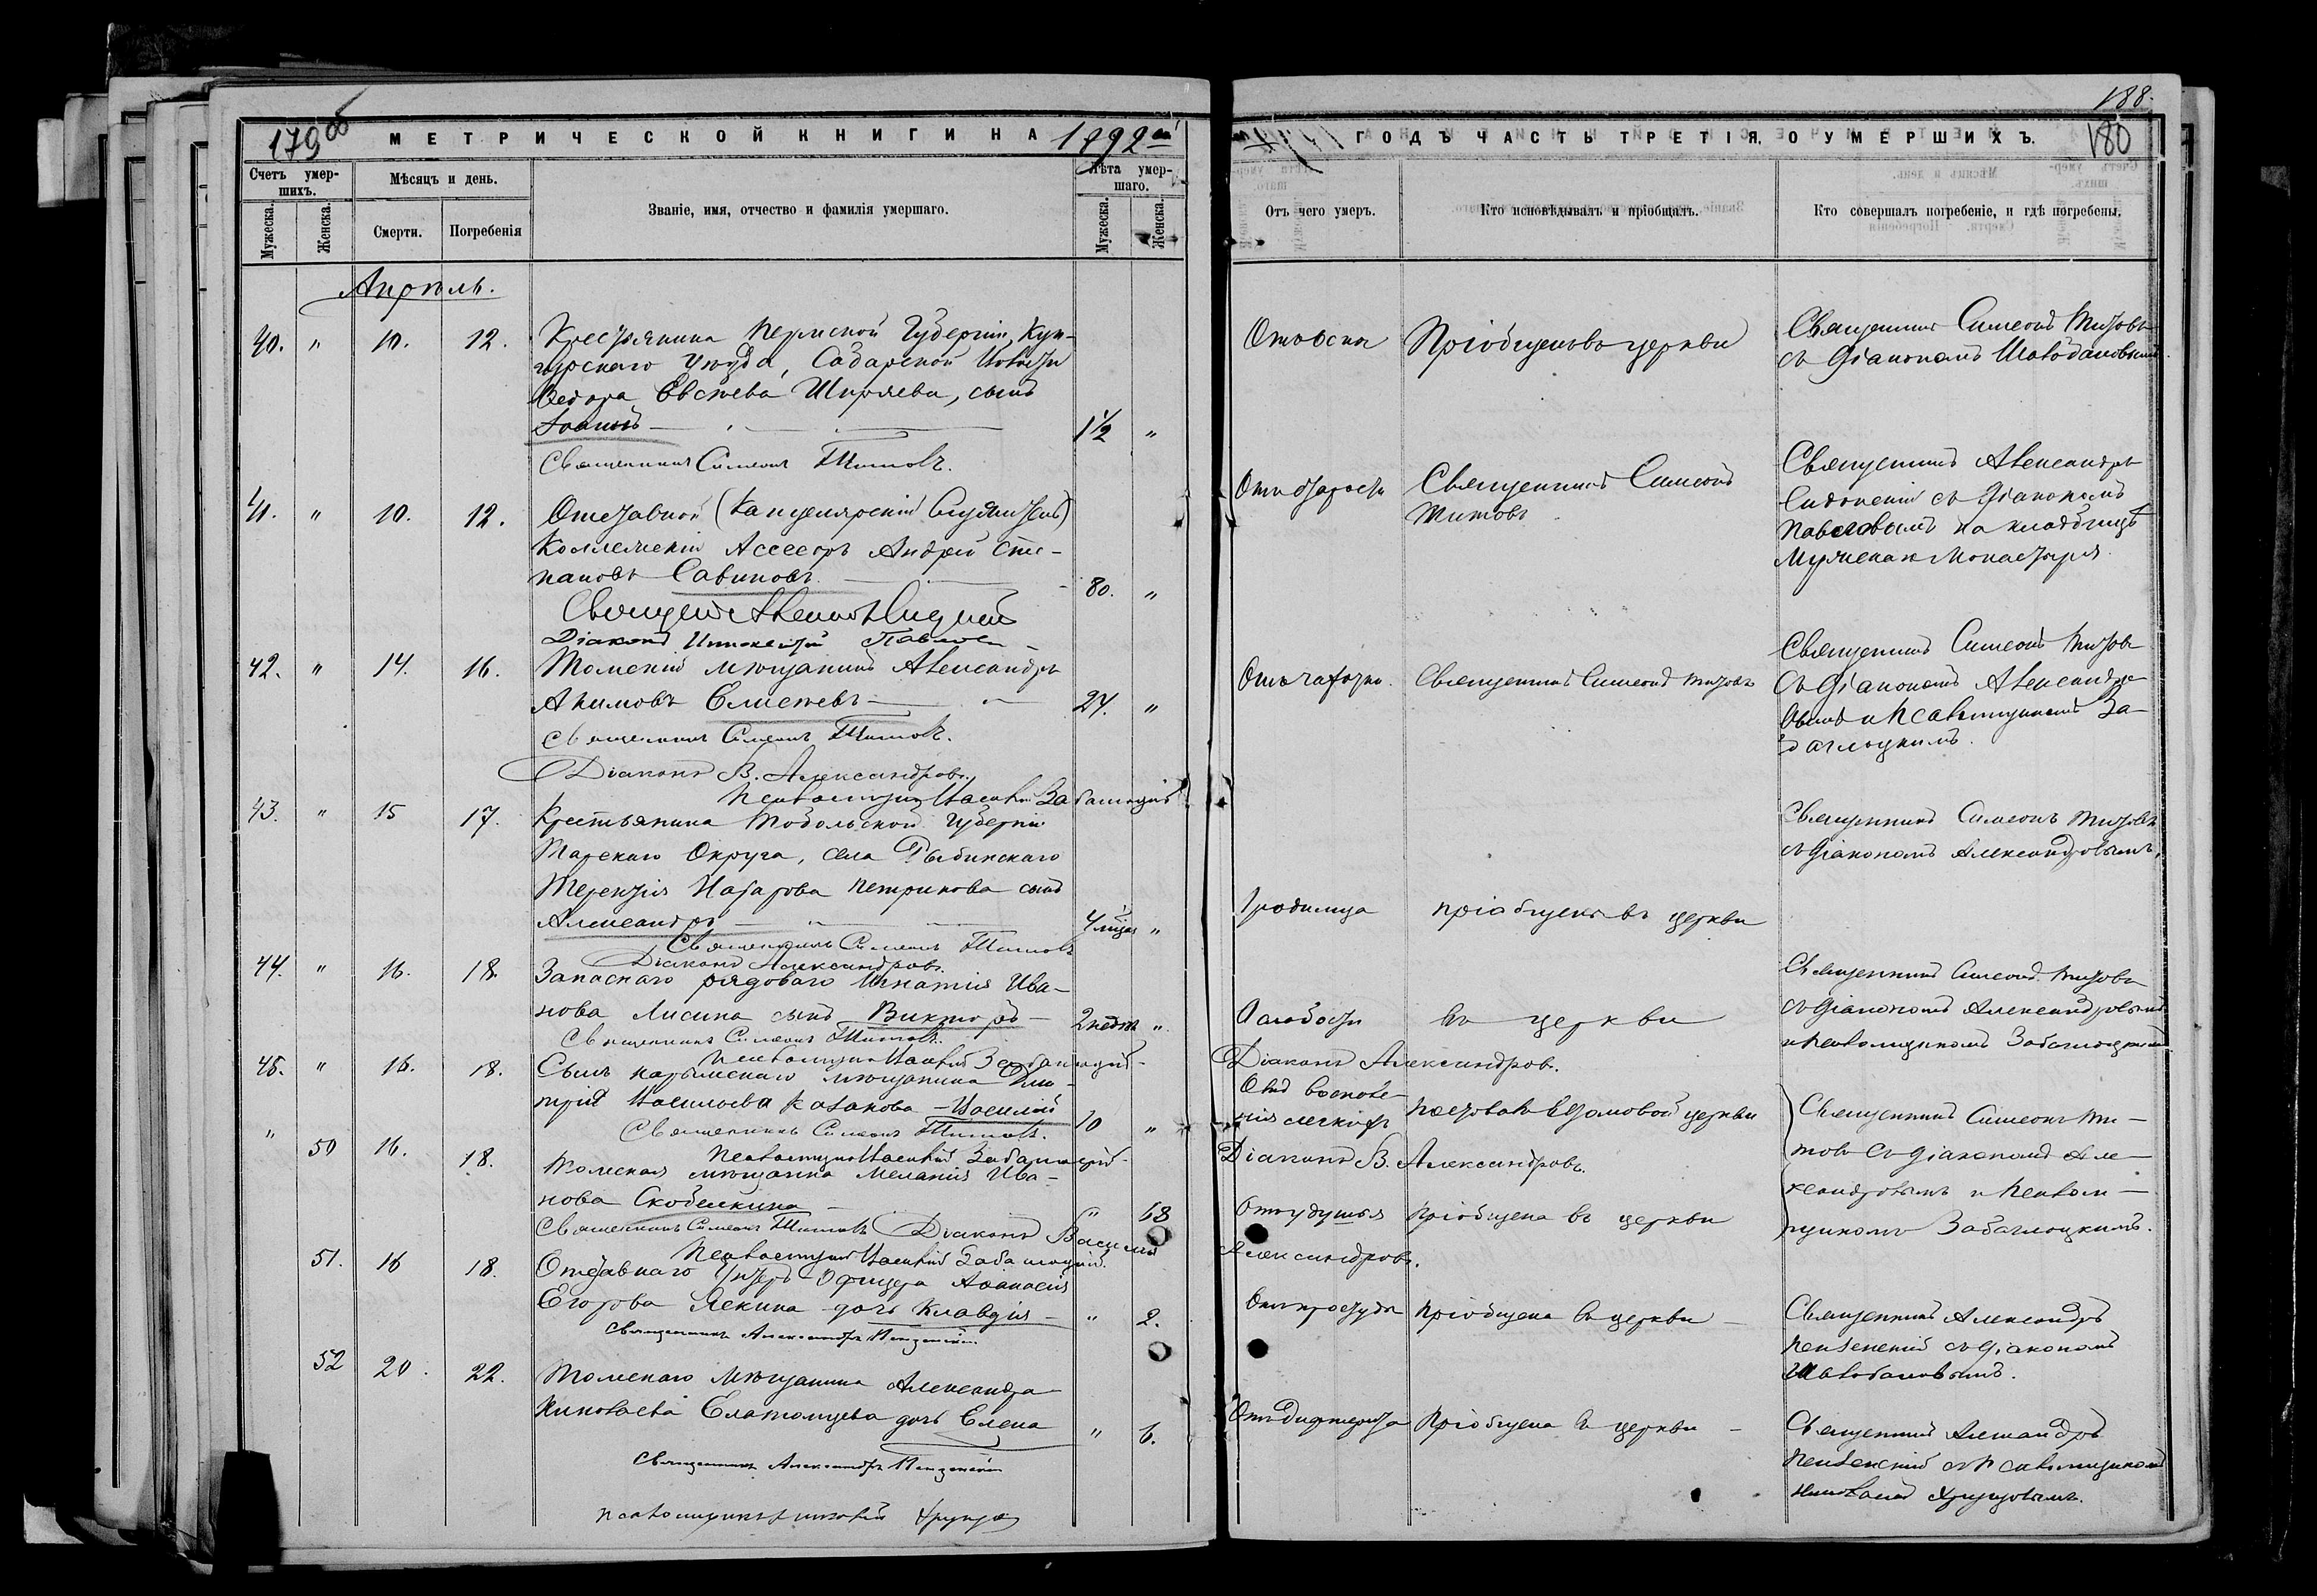 179 об
МЕТРИЧЕСКОЙ КНИГИ НА 1892 й
Счетъ умер-
шихъ.
Мѣсяцъ и день.
Званіе, имя, отчество и фамилія умершаго.
Лѣта умер-
шаго.
Мужеска.
Женска.
Смерти.
Погребенія
Мужеска.
Женска.
Апрѣль.
40. " 10. 12. Крестьянина Пермской Губерніи, Кун-
гурскаго уѣзда, Садарской Волости
Ѳедора Евстева Ширяева, сынъ
Іоаннъ 1½ "
Священникъ Симеонъ Титовъ.
41. " 10. 12. Отставной (Канцелярскій Служитель)
Коллежскій Ассесоръ Андрей Сте-
пановъ Савиновъ. 80. "
Діаконъ Иннокентій Павлов
42. " 14. 16. Томскій мѣщанинъ Александръ
Акимовъ Елисеевъ 24. "
Священникъ Симеонъ Титовъ.
Діаконъ В. Александровъ.
Псаломщикъ Василій Заблоцкій
43. " 15 17. Крестьянина Тобольской Губерніи
Тарскаго Округа, села Рыбинскаго
Терентія Назарова Петрикова сынъ
Александръ 4 "
Священникъ Симеонъ Титовъ
Діаконъ Александровъ.
44. " 16. 18. Запаснаго рядоваго Игнатія Ива-
нова Лисина сынъ Викторъ 2 недѣл "
Священникъ Симеонъ Титовъ.
Псаломщикъ Василій Забалоцкій
45. " 16. 18. Сынъ нарымскаго мѣщанина Дми-
трія Васильева Казакова - Василій 10 "
Священникъ Симеонъ Титовъ.
Псаломщикъ Василій Забалоцкій
" 50 16. 18. Томская мѣщанка Меланія Ива-
нова Скобелкина " 68
Священникъ Симеонъ Титовъ Діаконъ Василій
Псаломщикъ Василій Забалоцкій.
51. 16 18. Отставнаго Унтеръ-Офицера Аѳанасія
Егорова Лекина дочь Клавдія " 2.
Священникъ Александръ Пензенскій
52 20. 22. Томскаго Мѣщанина Александра
Николаева Елатомцева дочь Елена " 6.
Священникъ Александръ Пензенскій
Псаломщикъ Николай Хрущов
188.
180
ГОДЪ ЧАСТЬ ТРЕТІЯ, О УМЕРШИХЪ.
Отъ чего умеръ.
Кто исповѣдывалъ и пріобщалъ.
Кто совершалъ погребеніе, и гдѣ погребены.
Отъ оспы Пріобщенъ въ церкви
Священникъ Симеонъ Титовъ
съ діакономъ Шалобановымъ.
Отъ старости Священникъ Симеонъ
Титовъ
Священникъ Александръ
Сидонскій съ діакономъ
Павловымъ на кладбищѣ
Мужскаго Монастыря.
Отъ чахотки. Священникъ Симеонъ Титовъ
Священникъ Симеонъ Титовъ
съ діакономъ Александро
вымъ и Псаломщикомъ За-
балоцкимъ.
Священникъ Симеонъ Титовъ
съ діакономъ Александровымъ,
Родимца пріобщенъ въ церкви
Слабости въ церкви
Священникъ Симеонъ Титовъ
съ діакономъ Александровымъ
и Псаломщикомъ Забалоцкимъ
Діаконъ Александровъ.
Отъ воспале-
нія легкихъ въ домовой церкви
Священникъ Симеонъ Ти-
товъ съ діакономъ Але-
ксандровымъ и Псалом-
щикомъ Забалоцкимъ.
Діаконъ В. Александровъ.
Отъ удушья Пріобщена въ церкви
Александровъ.
Отъ простуды Пріобщена въ церкви
Священникъ Александръ
Пензенскій съ діакономъ
Шалобановымъ.
Отъ дифтерита Пріобщена въ церкви
Священникъ Александръ
Пензенскій съ Псаломщикомъ
Николаемъ Хрущовымъ.